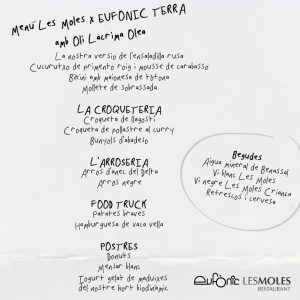 Menú Les Moles x EUFÒNIC TERRA
amb Oli Lacrima Olea
La nostra versio de l'ensaladilla rusa
Cucurutxo de primento roig i mousse de carabassó
Bikini amb maionesa de tòfona
Mollete de sobrassada
LA CROQUETERIA
Croqueta de llagostí
Croqueta de pollastre al curry
Bunyols d'abadejo
L'ARROSERIA
Arròs d'anec del Delta
Arròs negre
FOOD TRUCK
Patates braves
Hamburguesa de vaca vella
POSTRES
Donuts
Menjar blanc
Iogurt gelat de maduixes
del nostre hort biodinàmic
Begudes
Aigua mineral de Benassal
Vi blanc Les Moles
Vi negre Les Moles Criança
Refrescos i cervesa
eufònic LESMOLES
RESTAURANT